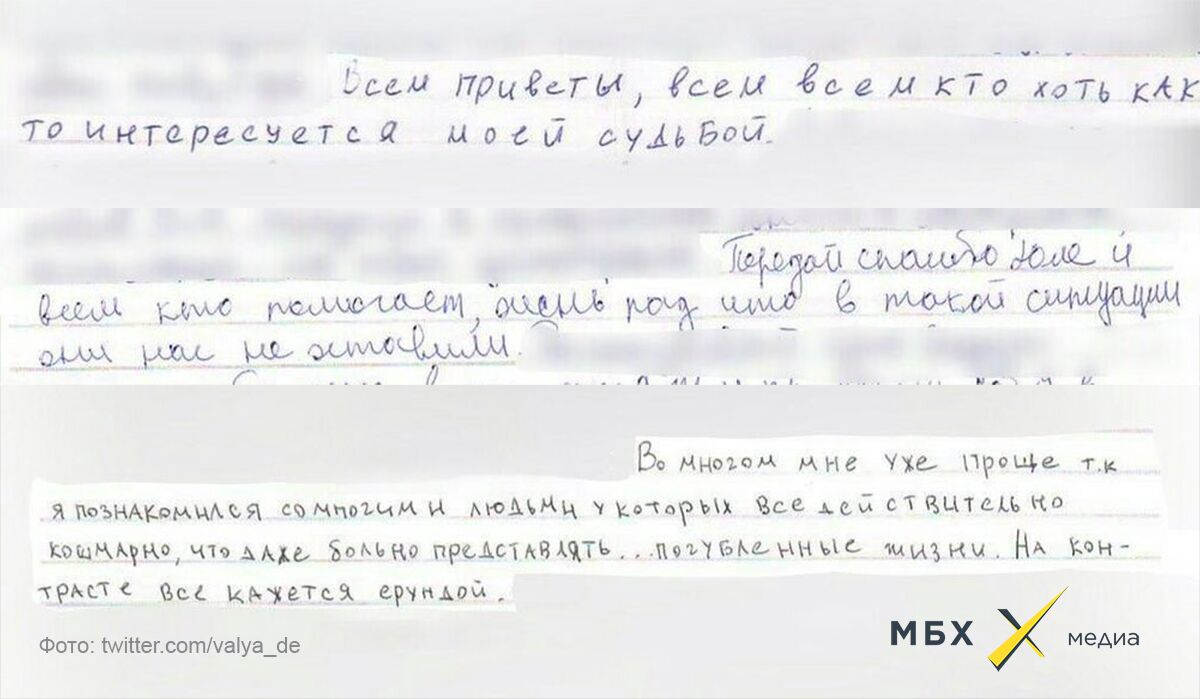 Всем приветы, всем всем кто хоть как
то интересуется моей судьбой.
Передай спасибо Юле и
всем кто помогает, очень рад что в такой ситуации
они нас не оставили.
Во многом мне уже проще т.к
я познакомился со многими людьми у которых все действительно
кошмарно, что даже больно представлять... погубленные жизни. На кон-
трасте все кажется ерундой.
Фото: twitter.com/valya_de
МБХ медиа